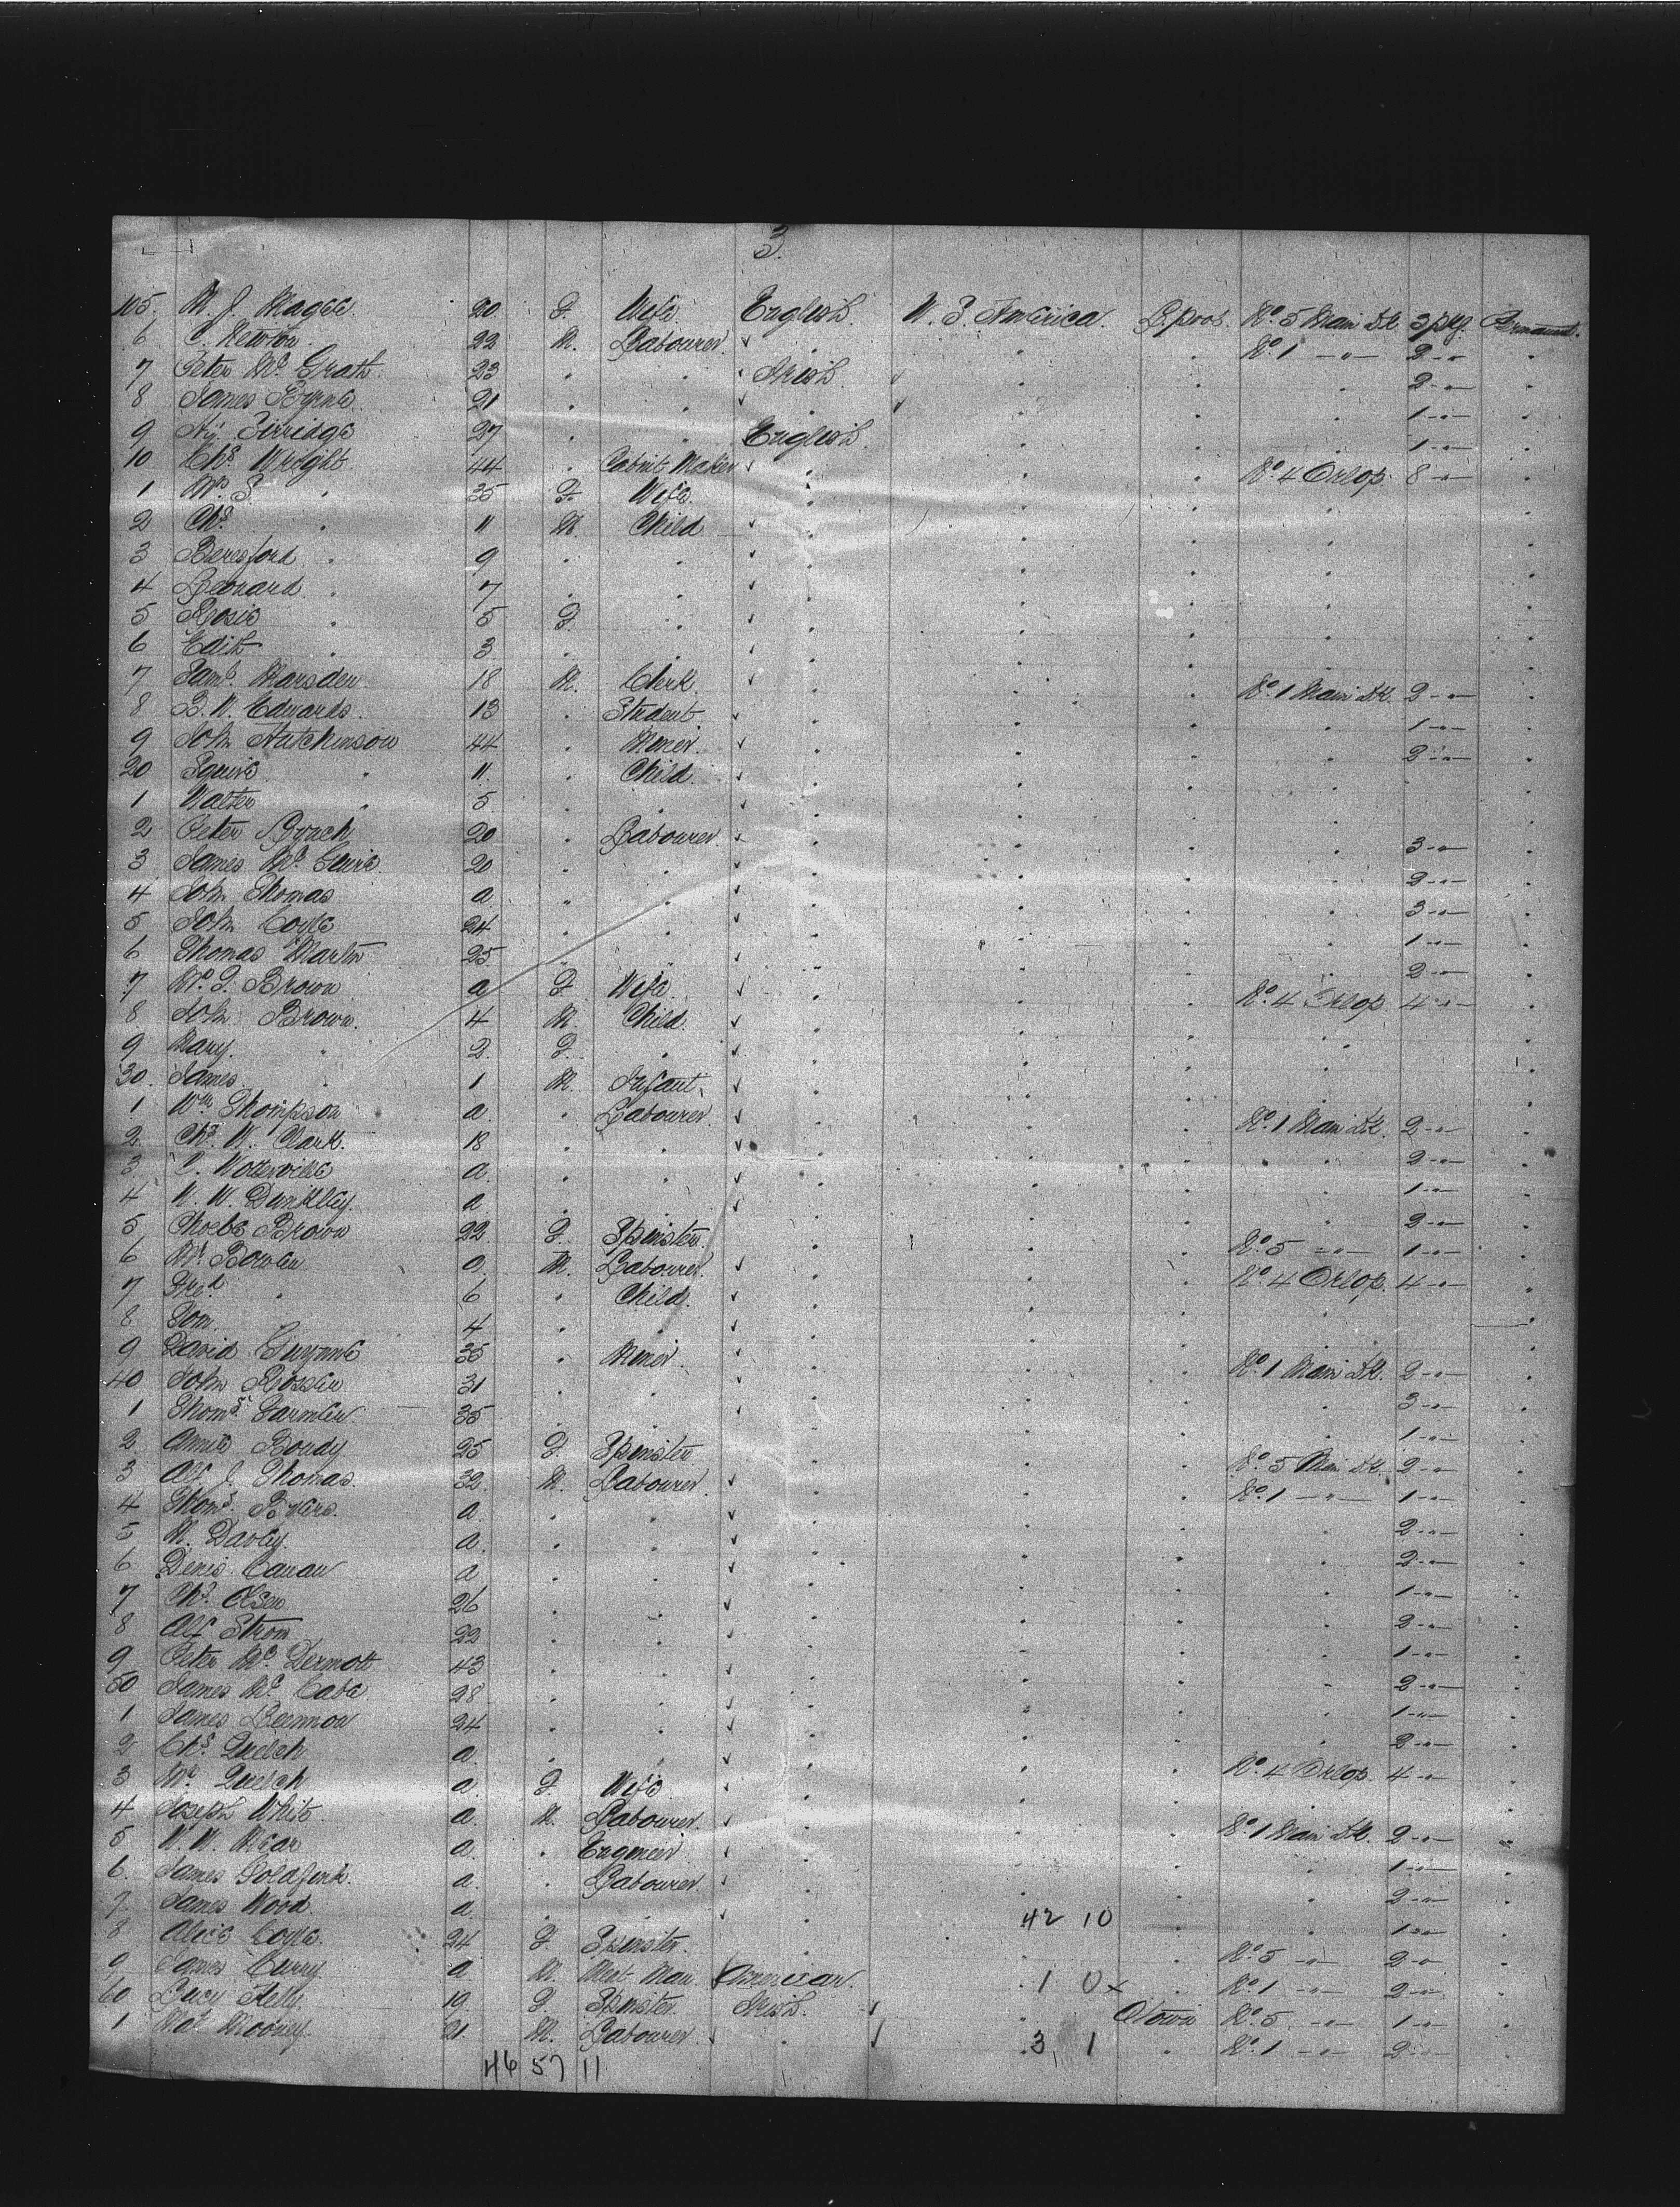 3.
105. M. J. Magee. 20 F. Wife English. U. S. America. L.pool. No. 5 Main Dk 3 pkg. Permanent.
6 C. Newton. 22 M. Labourer. No. 1 -"- 2 -"-
7 Peter Mc Grath. 23 Irish. 2 -"-
8 James Byrne 21 1 -"-
9 27 English 1 -"-
10 Chs. Wright 44 Cabnt Maker No. 4 Orlop. 8 -"-
1 Mrs. S. 35 F. Wife.
2 Chs. 11 M. Child
3 Beresford 9
4 Leonard 7
5 Rosie 5 F.
6 Edith 3
7 Saml. Marsden 18 M. Clerk No. 1 Main Dk. 2 -"-
8 B. W. Edwards. 13 Student 1 -"-
9 John Hutchinson 44 Miner. 2 -"-
20 Squire 11 Child
1 Walter 5
2 Peter Lynch 20 Labourer. 3 -"-
3 James Mc. Guire. 20 2 -"-
4 John Thomas a 3 -"-
5 John Coyle 24 1 -"-
6 Thomas Martin 25 2 -"-
7 Mrs. F. Brown a F. Wife No. 4 Orlop. 4 -"-
8 John Brown. 4 M. Child.
9 Mary. 2 F.
30. James 1 M. Infant
1 Wm. Thompson a. Labourer. No. 1 Main Dk. 2 -"-
2 Chs. W. Clark. 18 2 -"-
3 C. a. 1 -"-
4 W. W. Dunkley. a 2 -"-
5 Phoebe Brown 22 F. Spinster. No. 5 -"- 1 -"-
6 Mr. Bowen a. M. Labourer. No. 4 Orlop. 4 -"-
7 Fred. 6 Child.
8 Tom. 4
9 David Gwynne 35 Miner. No. 1 Main Dk. 2 -"-
40 John Rosser 31 3 -"-
1 Thoms. 35 1 -"-
2 Annie 25 F. Spinster No. 5 Main Dk. 2 -"-
3 Alf. J. Thomas. 32 M. Labourer. No. 1 -"- 1 -"-
4 Thoms. a. 2 -"-
5 M. Davey. a. 2 -"-
6 Denis Canan a 1 -"-
7 Chs. Olsen 26 2 -"-
8 Alf Strom 22 1 -"-
9 Peter Mc. Dermott 43 2 -"-
50 James Mc. Cabe. 28 1 -"-
1 James Lennon 24 2 -"-
2 Chs. Quelch a. No. 4 Orlop. 4 -"-
3 Mrs. Quelch a. F. Wife
4 Joseph White a. M. Labourer. No. 1 Main Dk. 2 -"-
5 W. W. a. Engineer 1 -"-
6. James a. Labourer. 2 -"-
7. James Wood. a 42 10 1 -"-
8 Alice Coyle. 24 F Spinster. No. 5 -"- 2 -"-
9 James Curry a M. American. 1 0x No. 1 -"- 2 -"-
60 Lucy Kelly. 19. F. Spinster Irish. Qtown No. 5. -"- 1 -"-
1 Mat. Mooney. 21. M. Labourer. 3 1 No. 1 -"- 2 -"-
46 57 11